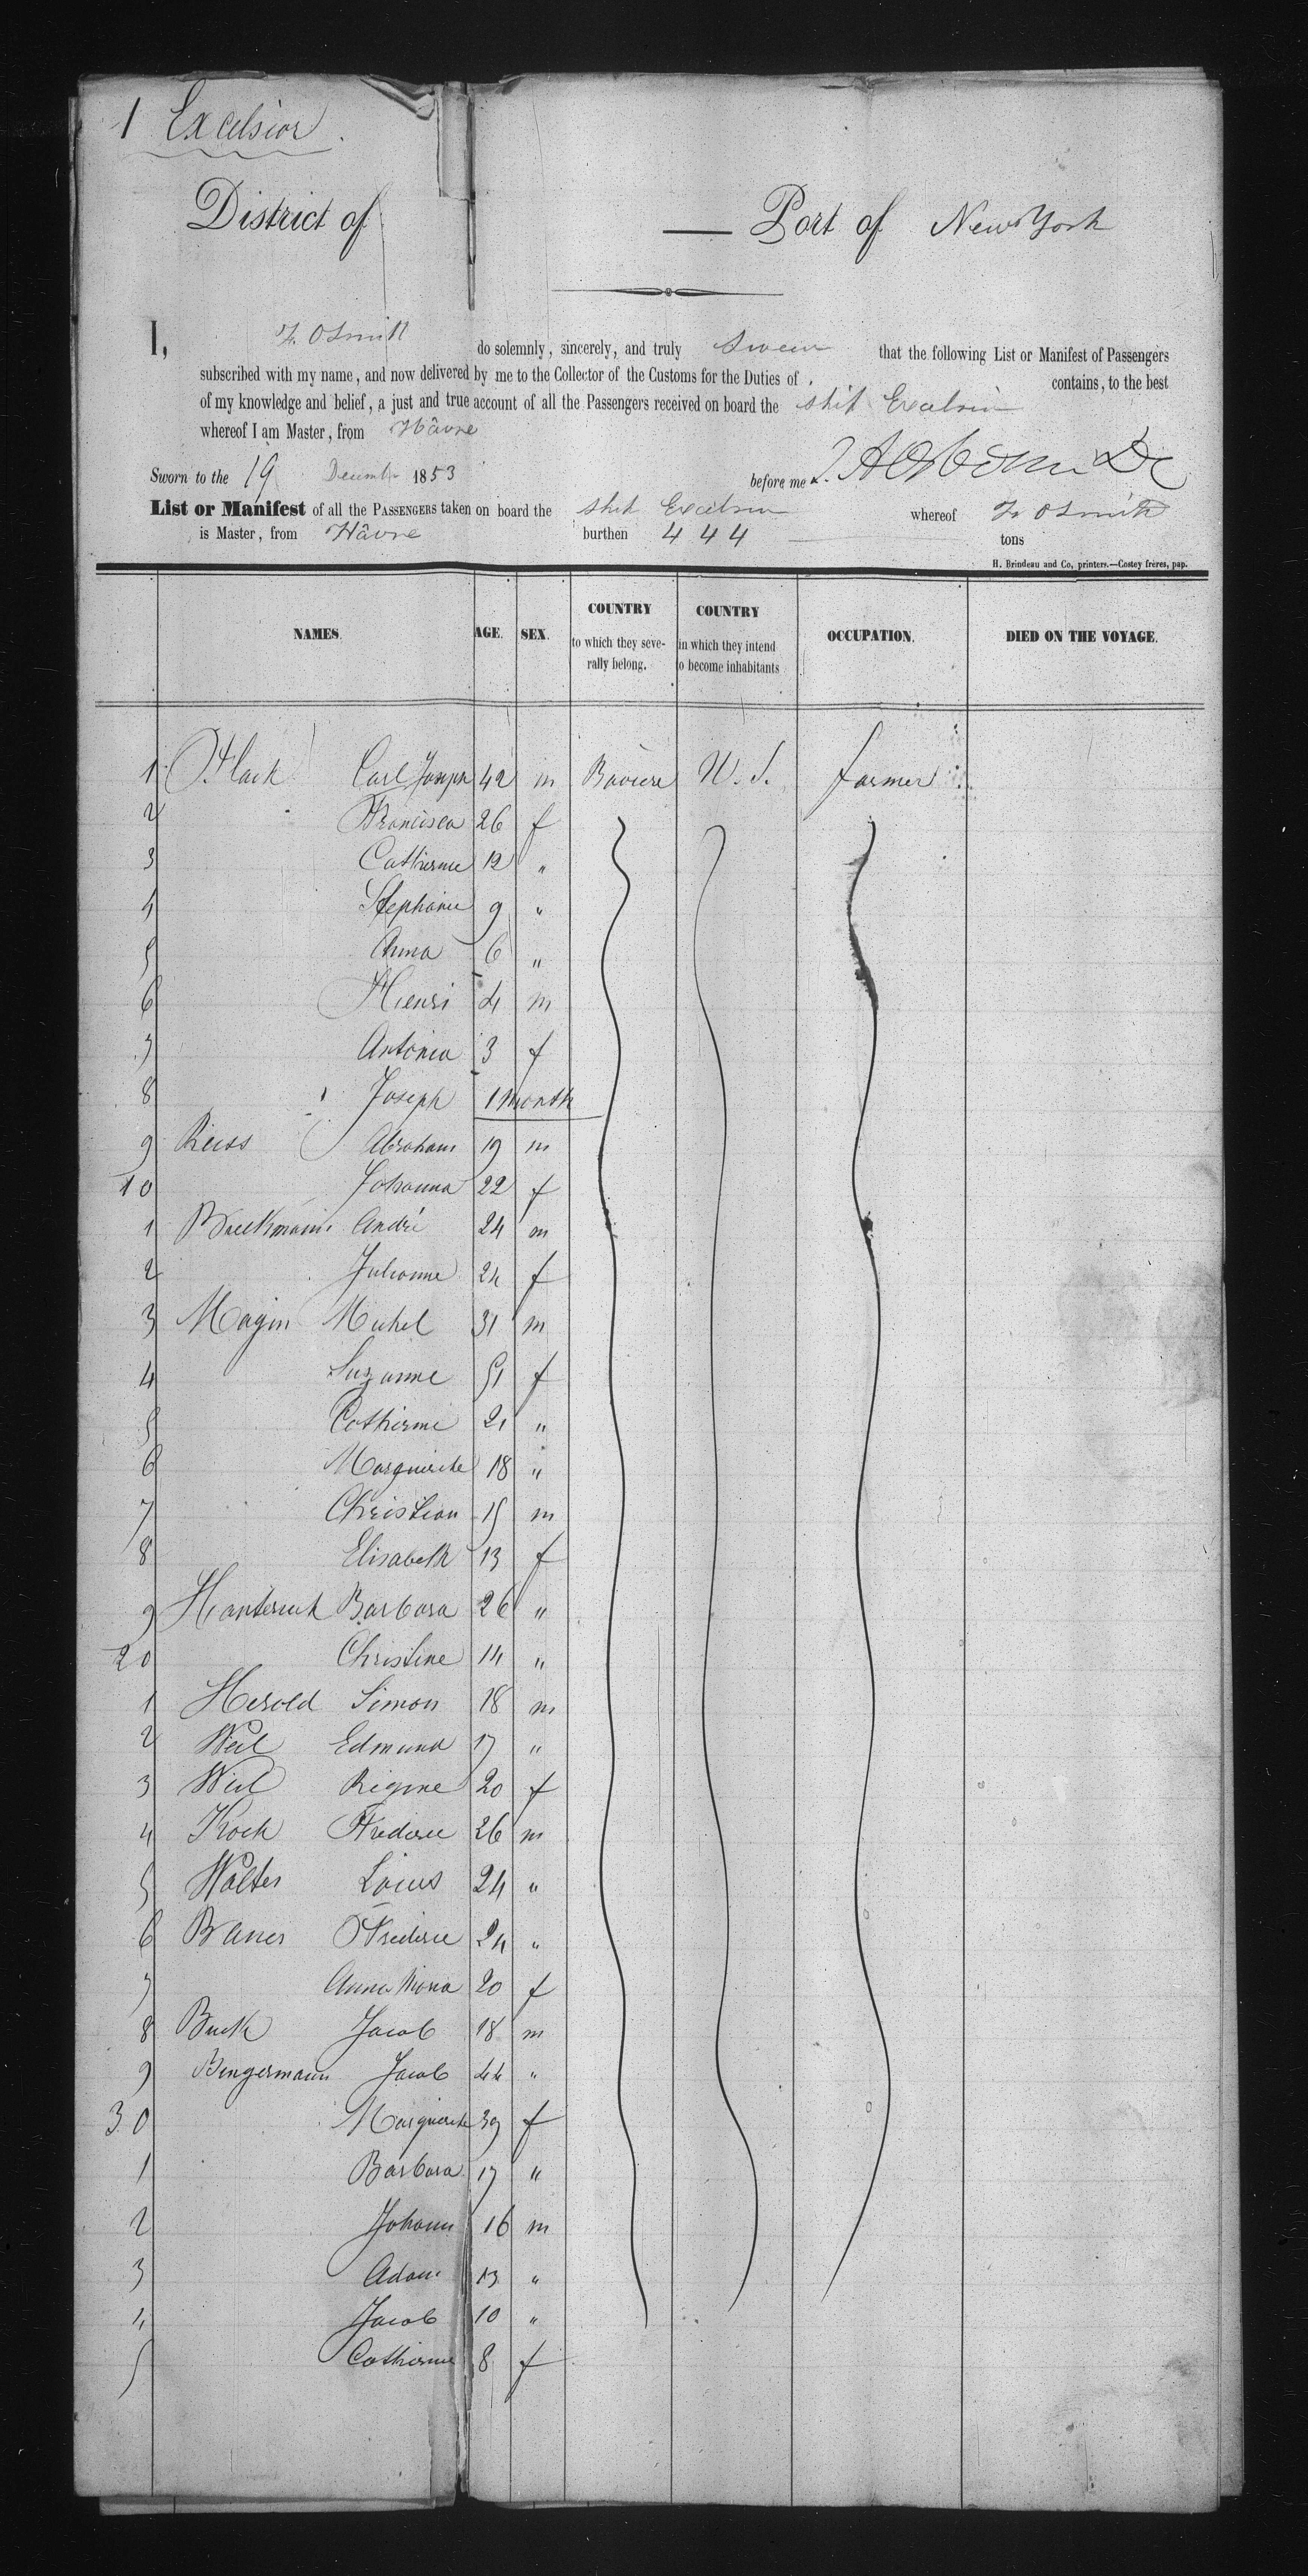 1 Excelsior.
District of — Port of New York
I, F. O Smith do solemnly, sincerely, and truly Swear that the following List or Manifest of Passengers
subscribed with my name, and now delivered by me to the Collector of the Customs for the Duties of contains, to the best
of my knowledge and belief, a just and true account of all the Passengers received on board the ship Excelsior
whereof I am Master, from Hâvre
Sworn to the 19 December 1853 before me
List or Manifest of all the PASSENGERS taken on board the ship Excelsior whereof F. O Smith
is Master, from Hâvre burthen 444 tons
H. Brindeau and Co, printers.—Costey frères, pap.
NAMES. AGE. SEX. COUNTRY to which they severally belong. COUNTRY in which they intend o become inhabitants OCCUPATION. DIED ON THE VOYAGE.
1 Carl Joseph 42 m Baviere U. S. farmer
2 Francisca 26 f
3 Catherine 12 "
4 Stephanie 9 "
5 Anna 6 "
6 Henri 4 m
7 Antonia 3 f
8 Joseph 1 Month
9 Reiss Abraham 19 m
10 Johanna 22 f
1 André 24 m
2 Julianne 24 f
3 Magin Michel 31 m
4 Suzanne 51 f
5 Catherine 21 "
6 Marguerite 18 "
7 Christian 15 m
8 Elisabeth 13 f
9 Barbara 26 "
20 Christine 14 "
1 Herold Simon 18 m
2 Weil Edmund 17 "
3 Weil Regine 20 f
4 Koch Frederic 26 m
5 Walter Louis 24 "
6 Bauer Frederic 24 "
7 Anna Maria 20 f
8 Buck Jacob 18 m
9 Bingermann Jacob 44 "
30 Marguerite 39 f
1 Barbara 17 "
2 Johann 16 m
3 Adam 13 "
4 Jacob 10 "
5 Catherine 8 f